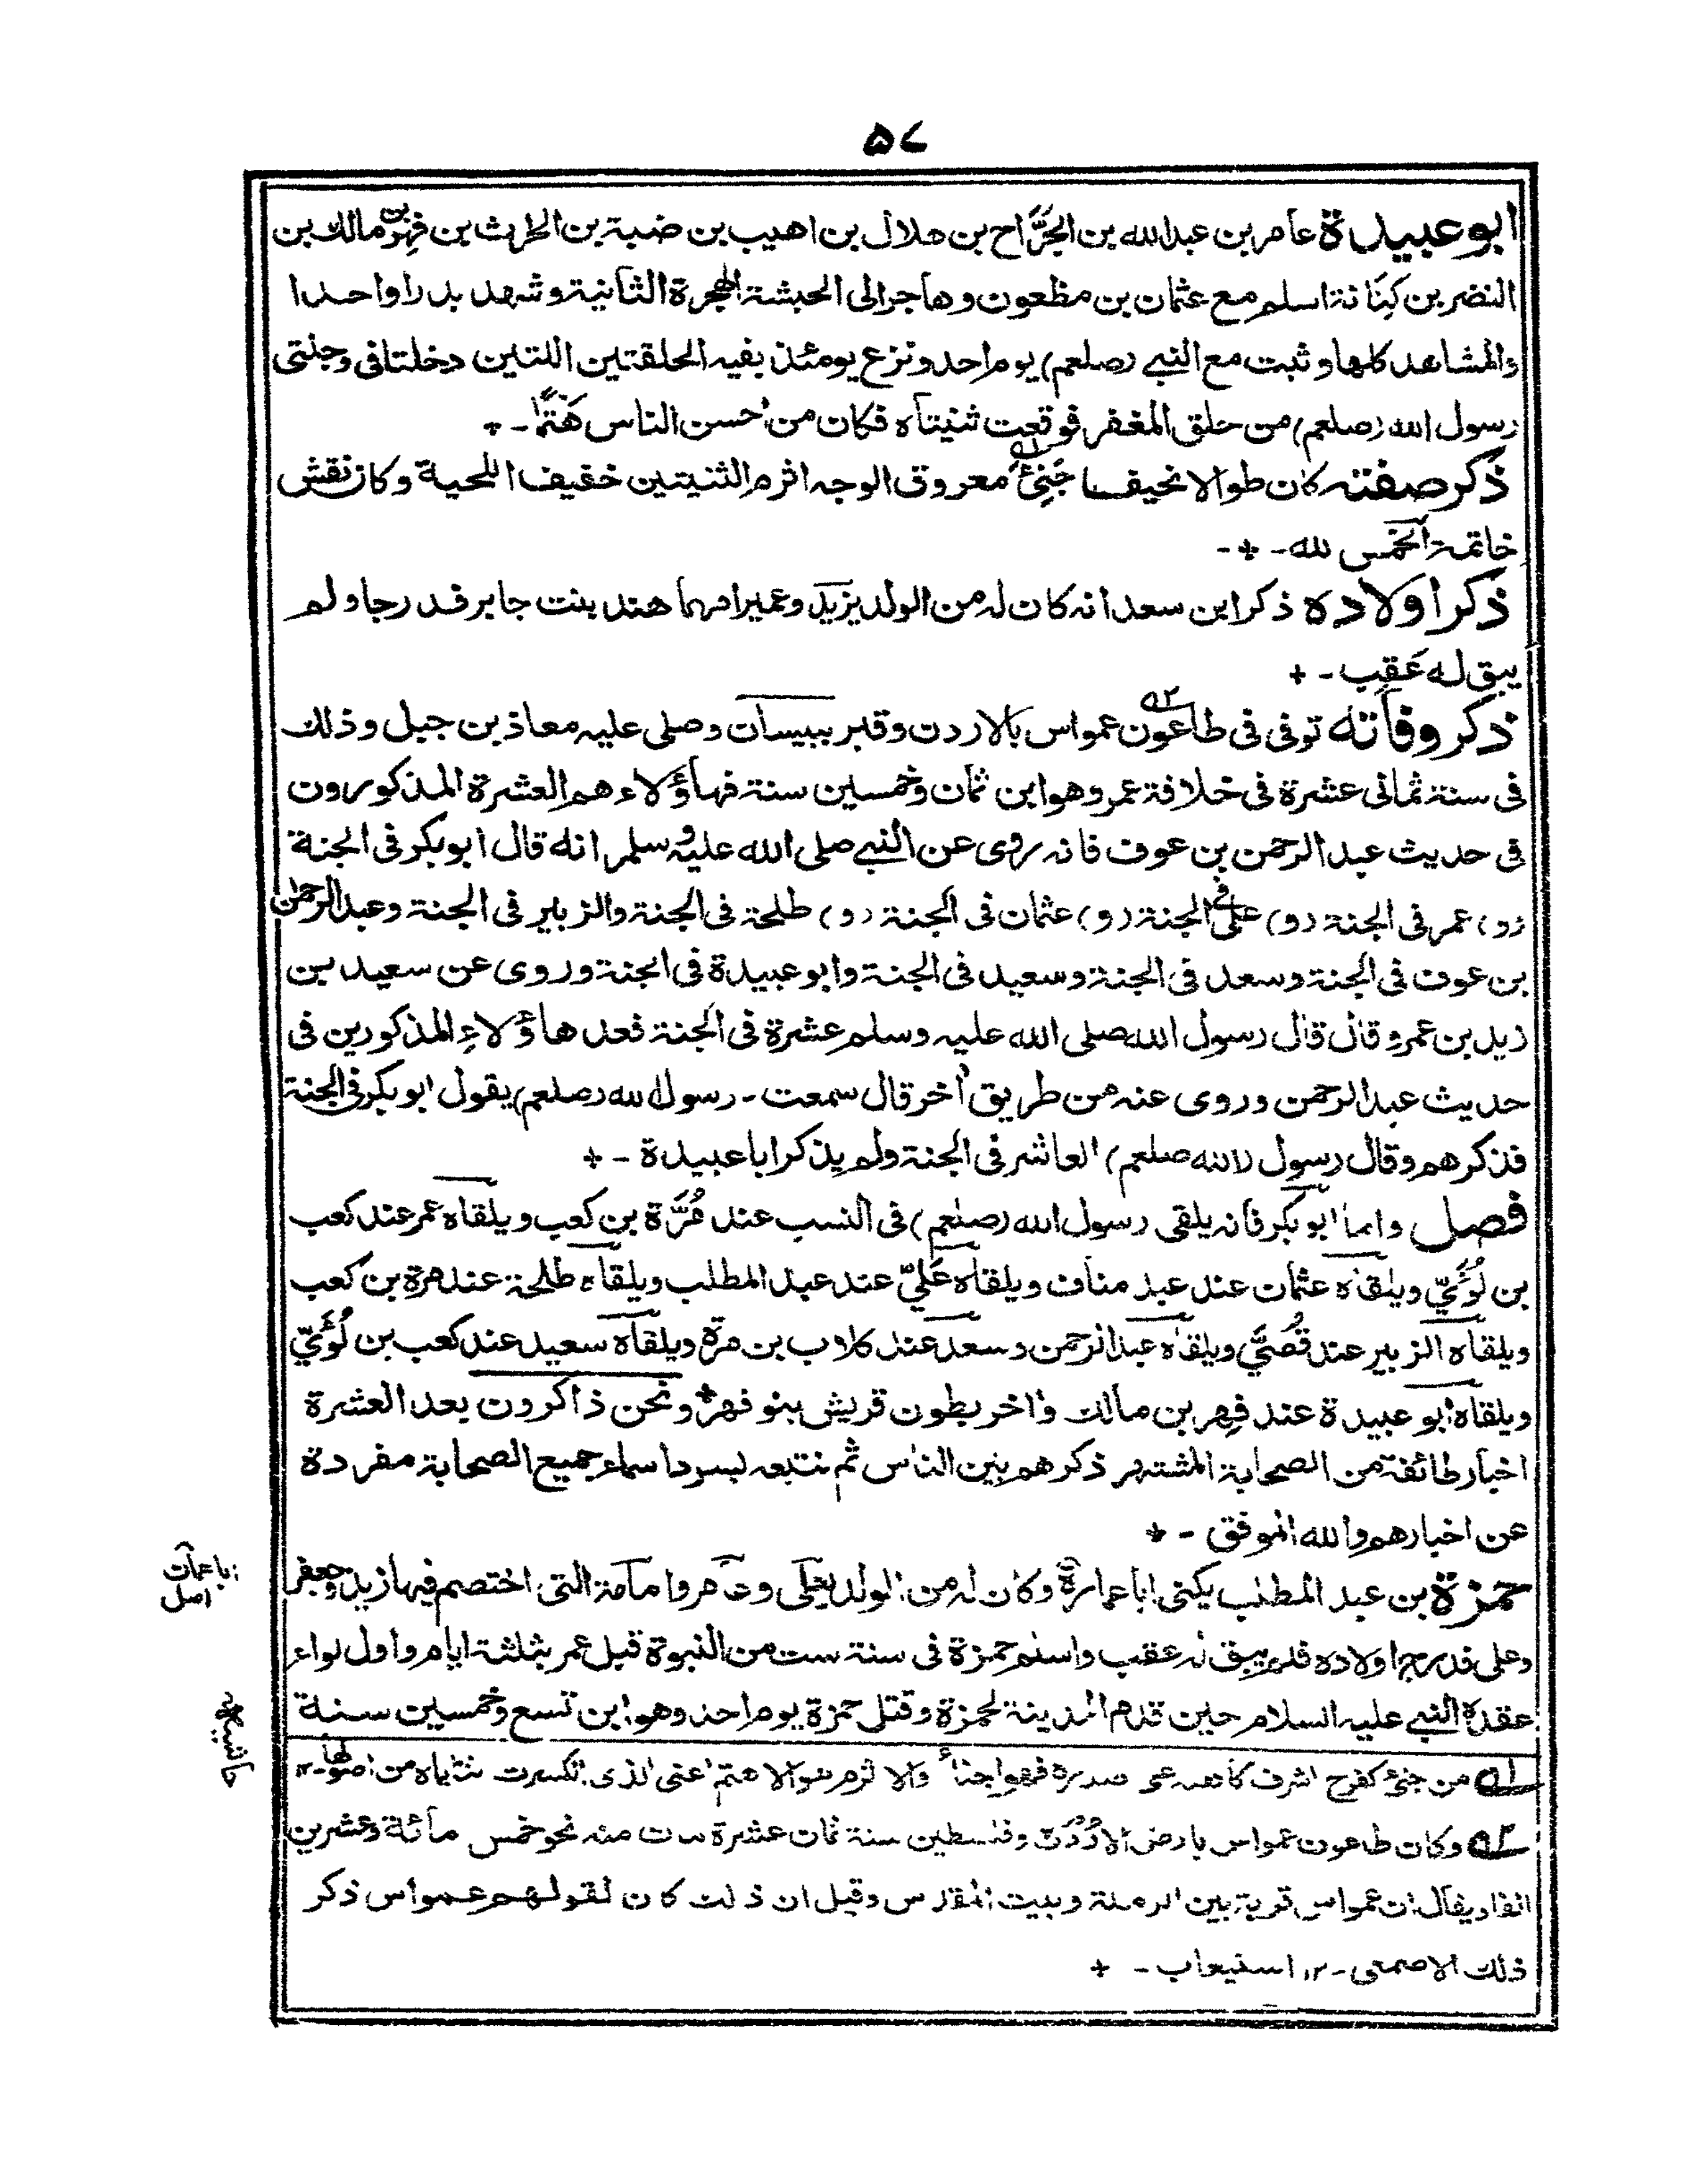 ۵۷
ابو عبيدة عامر بن عبد الله بن الجَرَّاح بن هلال بن اهيب بن ضبة بن الحرث بن فِهْر بن مالك بن
النضر بن كِنَانة اسلم مع عثمان بن مظعون وهاجر الى الحبشة الهجرة الثانية وشهد بدرا واحدا
والمشاهد كلها وثبت مع النبى (صلعم) يوم احد ونزع يومئذ بفيه الحلقتين اللتين دخلتا فى وجنتى
رسول الله (صلعم) من حلق المغفر فوقعت ثنيتاه فكان من احسن الناس هَتَمًا - +
ذكر صفته كان طوالا نحيفا جَنِئً ۱ معروق الوجه اثرم الثنيتين خفيف اللحية وكان نقش
خاتمه الخمس لله - + -
ذكر اولاده ذكر ابن سعد انه كان له من الولد يزيد وعمير امهما هند بنت جابر فدرجا ولم
يبق له عَقِب - +
ذكر وفاته توفى فى طاعون ۲ عمواس بالاردن وقبر ببيسان وصلى عليه معاذ بن جبل وذلك
فى سنة ثمانى عشرة فى خلافة عمر وهو ابن ثمان وخمسين سنة فهاؤلاء هم العشرة المذكورون
فى حديث عبد الرحمن بن عوف فانه روى عن النبى صلى الله عليه وسلم انه قال ابو بكر فى الجنة
(و) عمر فى الجنة (و) على فى الجنة (و) عثمان فى الجنة (و) طلحة فى الجنة والزبير فى الجنة وعبد الرحمان
بن عوف فى الجنة وسعد فى الجنة وسعيد فى الجنة وابو عبيدة فى الجنة وروى عن سعيد بن
زيد بن عمرو قال قال رسول الله صلى الله عليه وسلم عشرة فى الجنة فعد هاؤلاءِ المذكورين فى
حديث عبد الرحمن وروى عنه من طريق اٰخر قال سمعت - رسول الله (صلعم) يقول ابو بكر فى الجنة
فذكرهم وقال رسول (الله صلعم) العاشر فى الجنة ولم يذكر ابا عبيدة - +
فصل واما ابو بكر فانه يلقى رسول الله (صلعم) فى النسب عند مُرَّة بن كعب ويلقاه عمر عند كعب
بن لُؤَيّ ويلقاه عثمان عند عبد مناف ويلقاه عَلِيّ عند عبد المطلب ويلقاه طلحة عند مرة بن كعب
ويلقاه الزبير عند قُصَيّ ويلقاه عبد الرحمن وسعد عند كلاب بن مرة ويلقاه سعيد عند كعب بن لُؤَيّ
ويلقاه ابو عبيدة عند فِهر بن مالك واٰخر بطون قريش بنو فهر + ونحن ذاكرون بعد العشرة
اخبار طائفة من الصحابة المشتهر ذكرهم بين الناس ثم نتبعه بسرد اسماء جميع الصحابة مفردة
عن اخبارهم والله الموفق - +
حمزة بن عبد المطلب يكنى ابا عمارة وكان له من الولد يعلى وعامر وامامة التى اختصم فيها زيد وجعفر
وعلى فدرج اولاده فلم يبق له عقب واسلم حمزة فى سنة ست من النبوة قبل عمر بثلثة ايام واول لواء
عقده النبى عليه السلام حين قدم المدينة لحمزة وقتل حمزة يوم احد وهو ابن تسع وخمسين سنة
ابا عمان
اصل
حاشية
۱ من جنئ كفرح اشرف كاهله على صدره فهو اجنأ والاثرم هو الاهتم اعنى الذى انكسرت ثناياه من اصولها - ۱۲
۲ وكان طاعون عمواس بارض الاُرْدُنّ وفلسطين سنة ثمان عشرة مات منه نحو خمس مائة وعشرين
الفا ويقال ان عمواس قرية بين الرملة وبيت المقدس وقيل ان ذلك كان لقولهم عم واس ذكر
ذلك الاصمعى - ۱۲ استيعاب - +